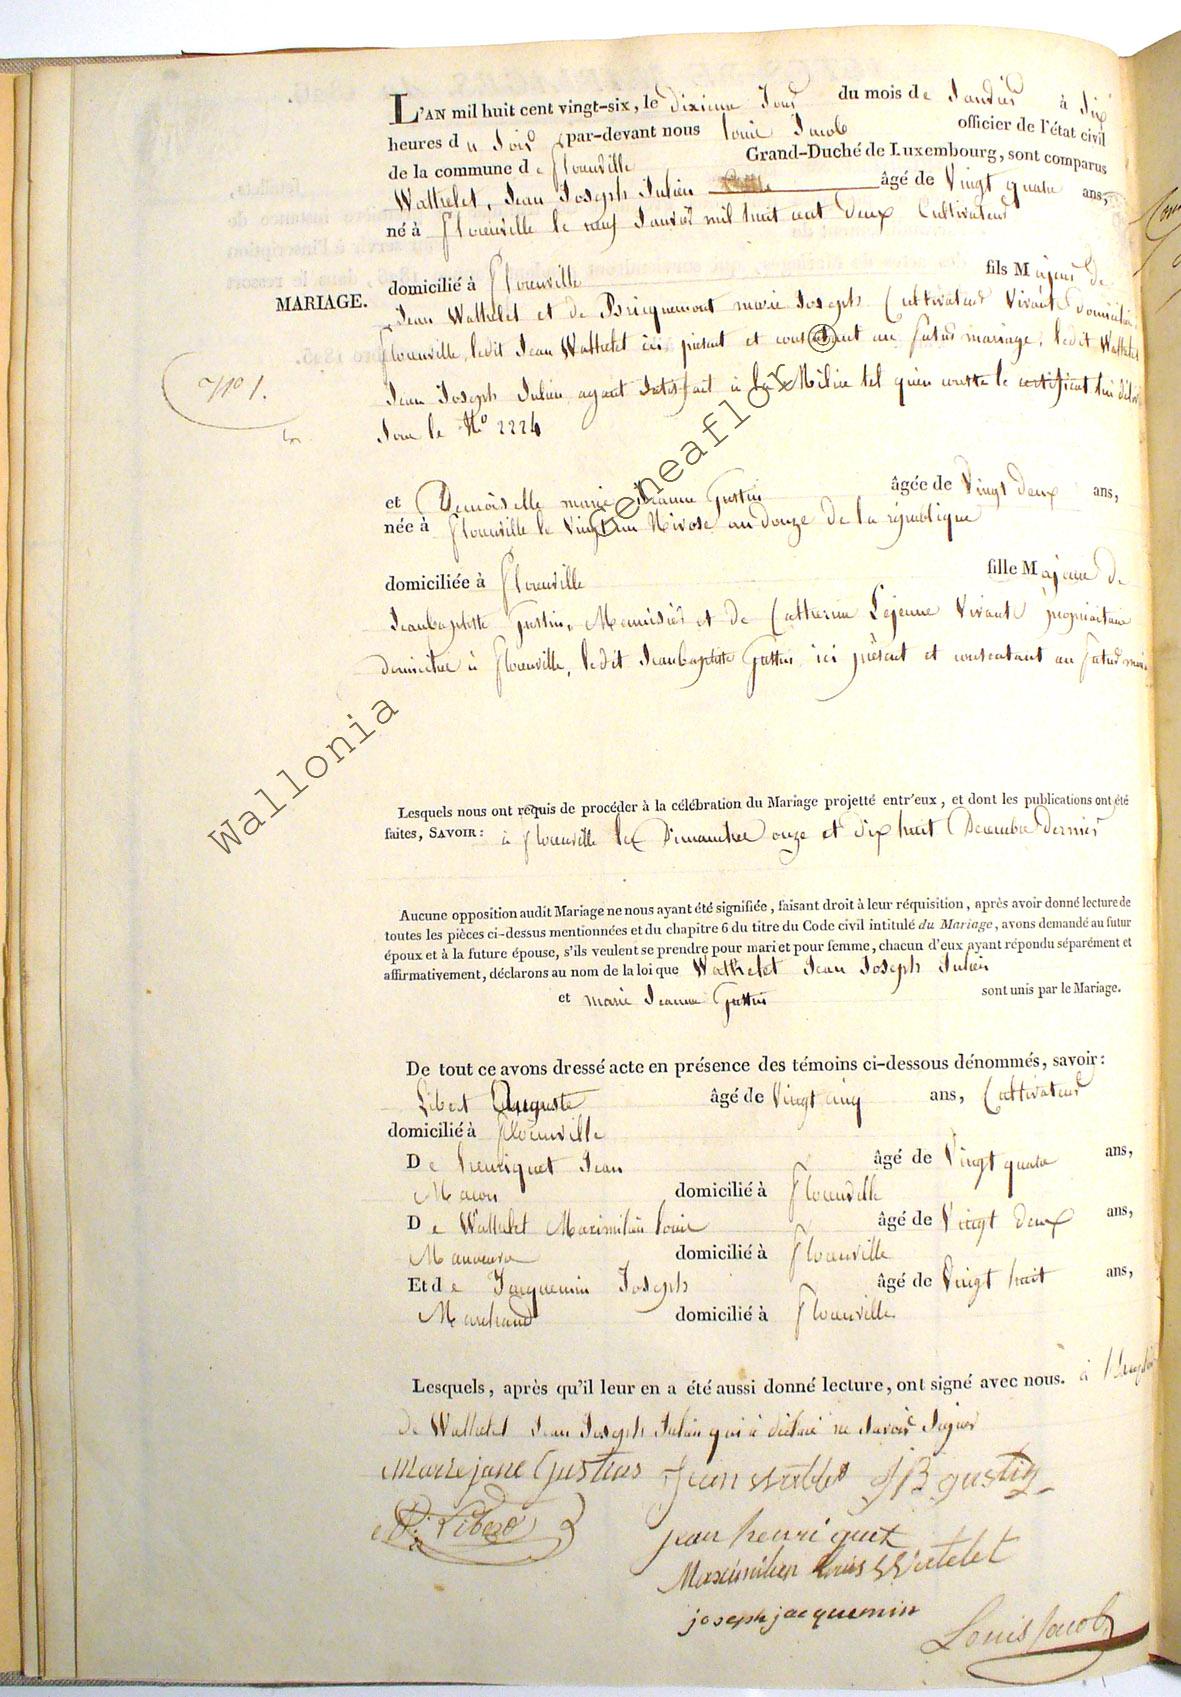 L'AN mil huit cent vingt-six, le dixieme Jour du mois de Janvier à Six
heures du Soir par-devant nous Louis Jacob officier de l'état civil
de la commune de florenville Grand-Duché de Luxembourg, sont comparus
Wathelet, Jean Joseph Julien âgé de Vingt quatre ans,
né à florenville le neuf Janvier mil huit cent deux Cultivateur
domicilié à florenville fils Majeur de
MARIAGE.
Jean Wathelet et de Bricquemont marie Joseph Cultivateur Vivants domiciliés
florenville, ledit Jean Wathelet ici présent et consentant au futur mariage, ledit Wathelet
N° 1.
Jean Joseph Julien ayant satisfait à la Milice tel qu'en conste le certificat lui délivré
sous le N° 2224
et Demoiselle marie Jeanne Gustin âgée de Vingt deux ans,
née à florenville le Vingt un Nivose an douze de la république
domiciliée à florenville fille Majeure de
Jeanbaptiste Gustin, Menuisier et de Catherine Lejeune Vivants propriétaire
domicilié à florenville, ledit Jeanbaptiste Gustin ici présent et consentant au futur
Lesquels nous ont requis de procéder à la célébration du Mariage projetté entr'eux, et dont les publications ont été
faites, SAVOIR : à florenville les Dimanches onze et dix huit Décembre dernier
Aucune opposition audit Mariage ne nous ayant été signifiée, faisant droit à leur réquisition, après avoir donné lecture de
toutes les pièces ci-dessus mentionnées et du chapitre 6 du titre du Code civil intitulé du Mariage, avons demandé au futur
époux et à la future épouse, s'ils veulent se prendre pour mari et pour femme, chacun d'eux ayant répondu séparément et
affirmativement, déclarons au nom de la loi que Wathelet Jean Joseph Julien
et marie Jeanne Gustin sont unis par le Mariage.
De tout ce avons dressé acte en présence des témoins ci-dessous dénommés, savoir :
Libert Auguste âgé de Vingt cinq ans, Cultivateur
domicilié à florenville
De henriquet Jean âgé de Vingt quatre ans,
Maçon domicilié à florenville
De Wathelet Maximilien louis âgé de Vingt deux ans,
Manoeuvre domicilié à florenville
Et de Jacquemin Joseph âgé de Vingt huit ans,
Marchand domicilié à florenville
Lesquels, après qu'il leur en a été aussi donné lecture, ont signé avec nous. à
de Wathelet Jean Joseph Julien qui à déclaré ne savoir signer
Marie jane Gustin Jean JB gustin
Libert
jean henriquet
Maximilien louis Watelet
joseph jacquemin
Louis Jacob
Wallonia @ Geneaflor